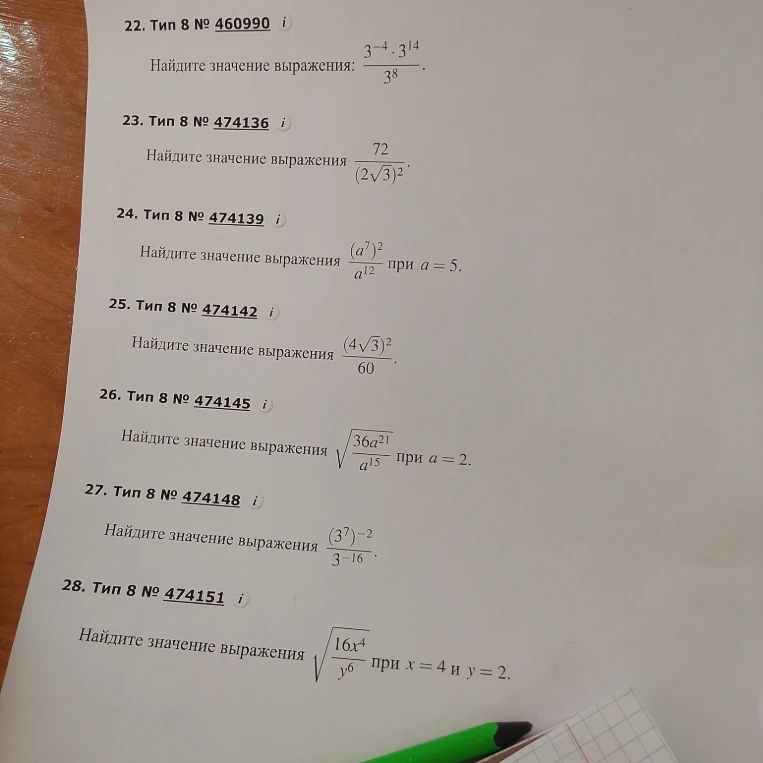 22. Тип 8 № 460990 i
Найдите значение выражения: \frac{3^{-4} \cdot 3^{14}}{3^{8}}.
23. Тип 8 № 474136 i
Найдите значение выражения \frac{72}{(2\sqrt{3})^2}.
24. Тип 8 № 474139 i
Найдите значение выражения \frac{(a^7)^2}{a^{12}} при a = 5.
25. Тип 8 № 474142 i
Найдите значение выражения \frac{(4\sqrt{3})^2}{60}.
26. Тип 8 № 474145 i
Найдите значение выражения \sqrt{\frac{36a^{21}}{a^{15}}} при a = 2.
27. Тип 8 № 474148 i
Найдите значение выражения \frac{(3^7)^{-2}}{3^{-16}}.
28. Тип 8 № 474151 i
Найдите значение выражения \sqrt{\frac{16x^4}{y^6}} при x = 4 и y = 2.